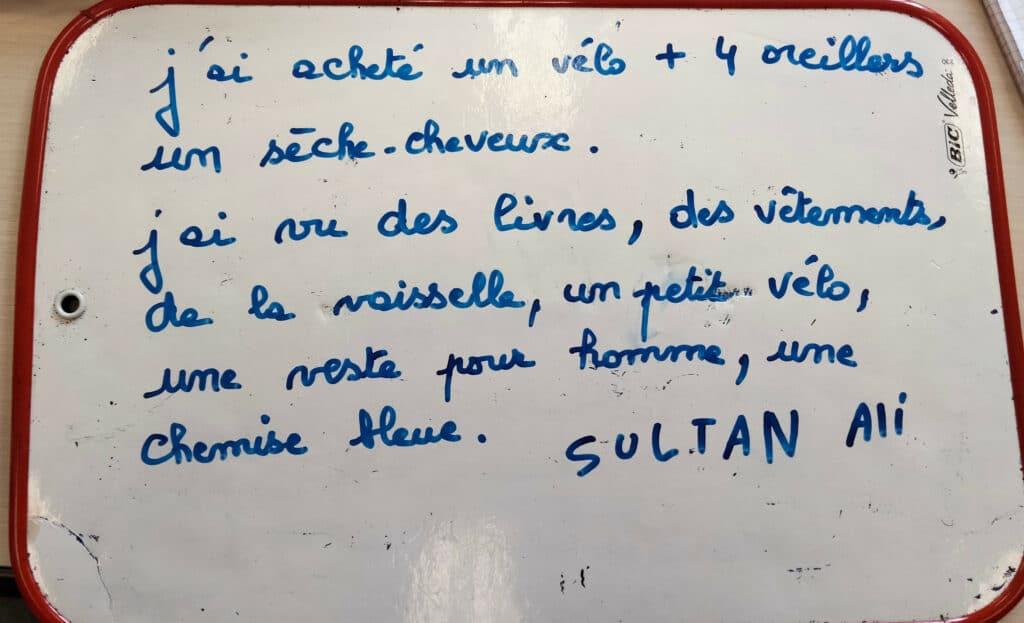 j'ai acheté un vélo + 4 oreillers
un sèche-cheveux.
j'ai vu des livres, des vêtements,
de la vaisselle, un petit vélo,
une veste pour homme, une
chemise bleue. SULTAN Ali
BIC Velleda